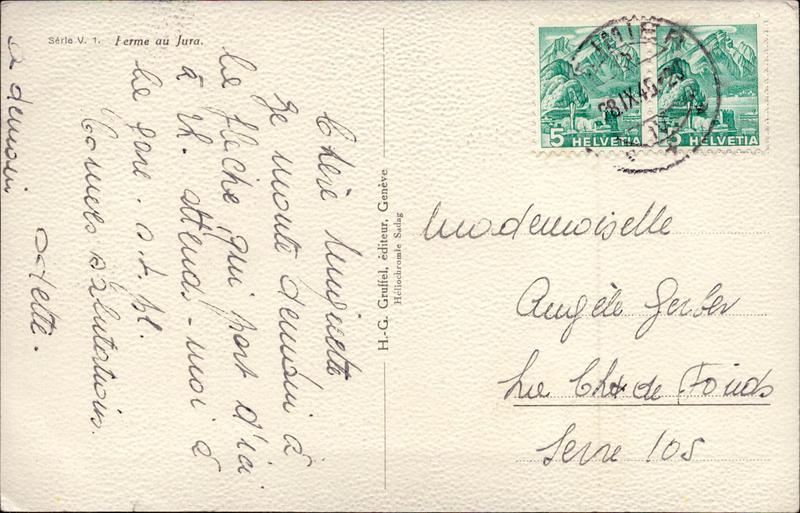 Série V. 1. Ferme au Jura.
Chère
Je monte demain à
la flèche qui part d'ici
à 7h. attends-moi à
la gare. s. t. pl.
salutations.
à demain
Odette.
H.-G. Gruffel, éditeur, Genève
Héliochromie Sadag
5 HELVETIA
5 HELVETIA
Mademoiselle
Angèle Gerber
La Chx de Fonds
Serre 105